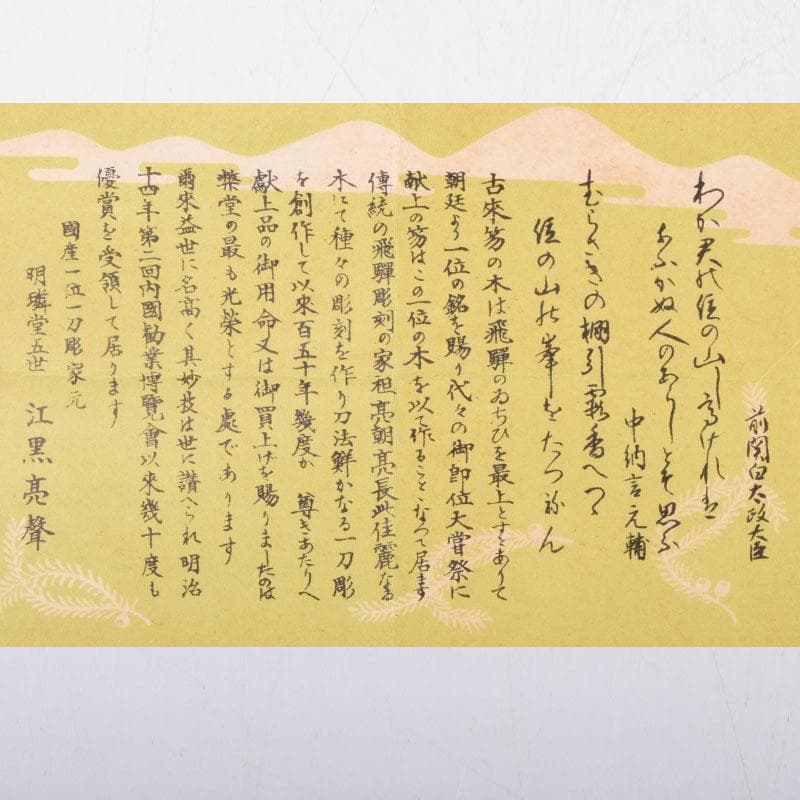 前関白太政大臣
わか君の位の山し高けれは
あふかぬ人のありしとそ思ふ
中納言元輔
むらさきの棚引
位の山の峯をたつねん
古來笏の木は飛驒のゐちひを最上とすとありて
朝廷より一位の銘を賜り代々の御即位大嘗祭に
献上の笏はこの一位の木を以て作ることなつて居ます
傳統の飛驒彫刻の家祖亮朝亮長此佳麗なる
木にて種々の彫刻を作り刀法鮮かなる一刀彫
を創作して以來百五十年幾度か 尊きあたりへ
獻上品の御用命又は御買上げを賜りましたのは
弊堂の最も光榮とする處であります
爾來益世に名高く其妙技は世に讃へられ明治
十四年第二回内國勧業博覽會以來幾十度も
優賞を受領して居ります
國産一位一刀彫家元
明璘堂五世 江黒亮聲